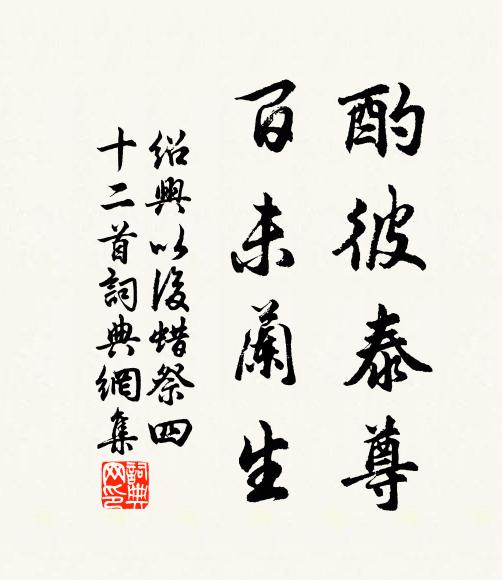 酌彼泰尊
百末蘭生
紹興以後蜡祭四
十二首詞典網集
詞典
网印